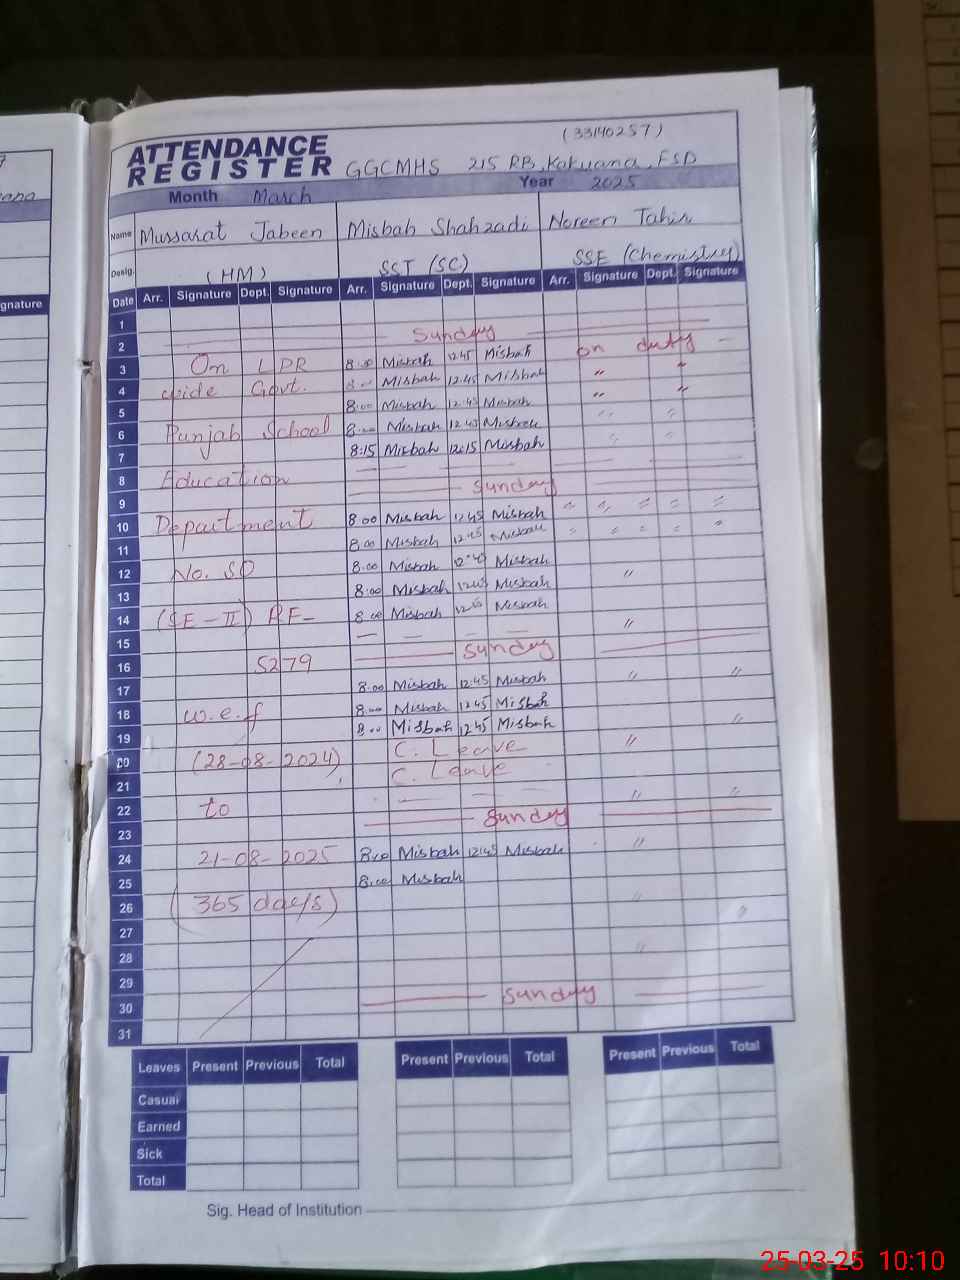 (33140257)
ATTENDANCE
REGISTER GGCMHS 215 RB, Kakuana, FSD
Month March Year 2025
Name Mussarat Jabeen Misbah Shahzadi Noreen Tahir
Desig. (HM) SST (SC) SSE (Chemistry)
Date Arr. Signature Dept. Signature Arr. Signature Dept. Signature Arr. Signature Dept. Signature
1
2 Sunday
3 On LPR 8:00 Misbah 12:45 Misbah on duty
4 wide Govt. 8:00 Misbah 12:45 Misbah " "
5 8:00 Misbah 12:45 Misbah " "
6 Punjab School 8:00 Misbah 12:45 Misbah " "
7 8:15 Misbah 12:15 Misbah " "
8 Education
9 Sunday
10 Department 8:00 Misbah 12:45 Misbah " " " " "
11 8:00 Misbah 12:45 Misbah " " " " "
12 No. SO 8:00 Misbah 12:45 Misbah
13 8:00 Misbah Misbah "
14 (SE-II) RF- 8:00 Misbah Misbah
15 "
16 5279 Sunday
17 8:00 Misbah 12:45 Misbah " "
18 w.e.f 8:00 Misbah 12:45 Misbah
19 8:00 Misbah 12:45 Misbah "
20 (28-08-2024) C. Leave "
21 C. Leave
22 to " "
23 Sunday
24 21-08-2025 8:00 Misbah 12:45 Misbah "
25 8:00 Misbah
26 (365 days) "
27 "
28 "
29
30 Sunday
31
Leaves Present Previous Total Present Previous Total Present Previous Total
Casual
Earned
Sick
Total
Sig. Head of Institution
25-03-25 10:10
gnature